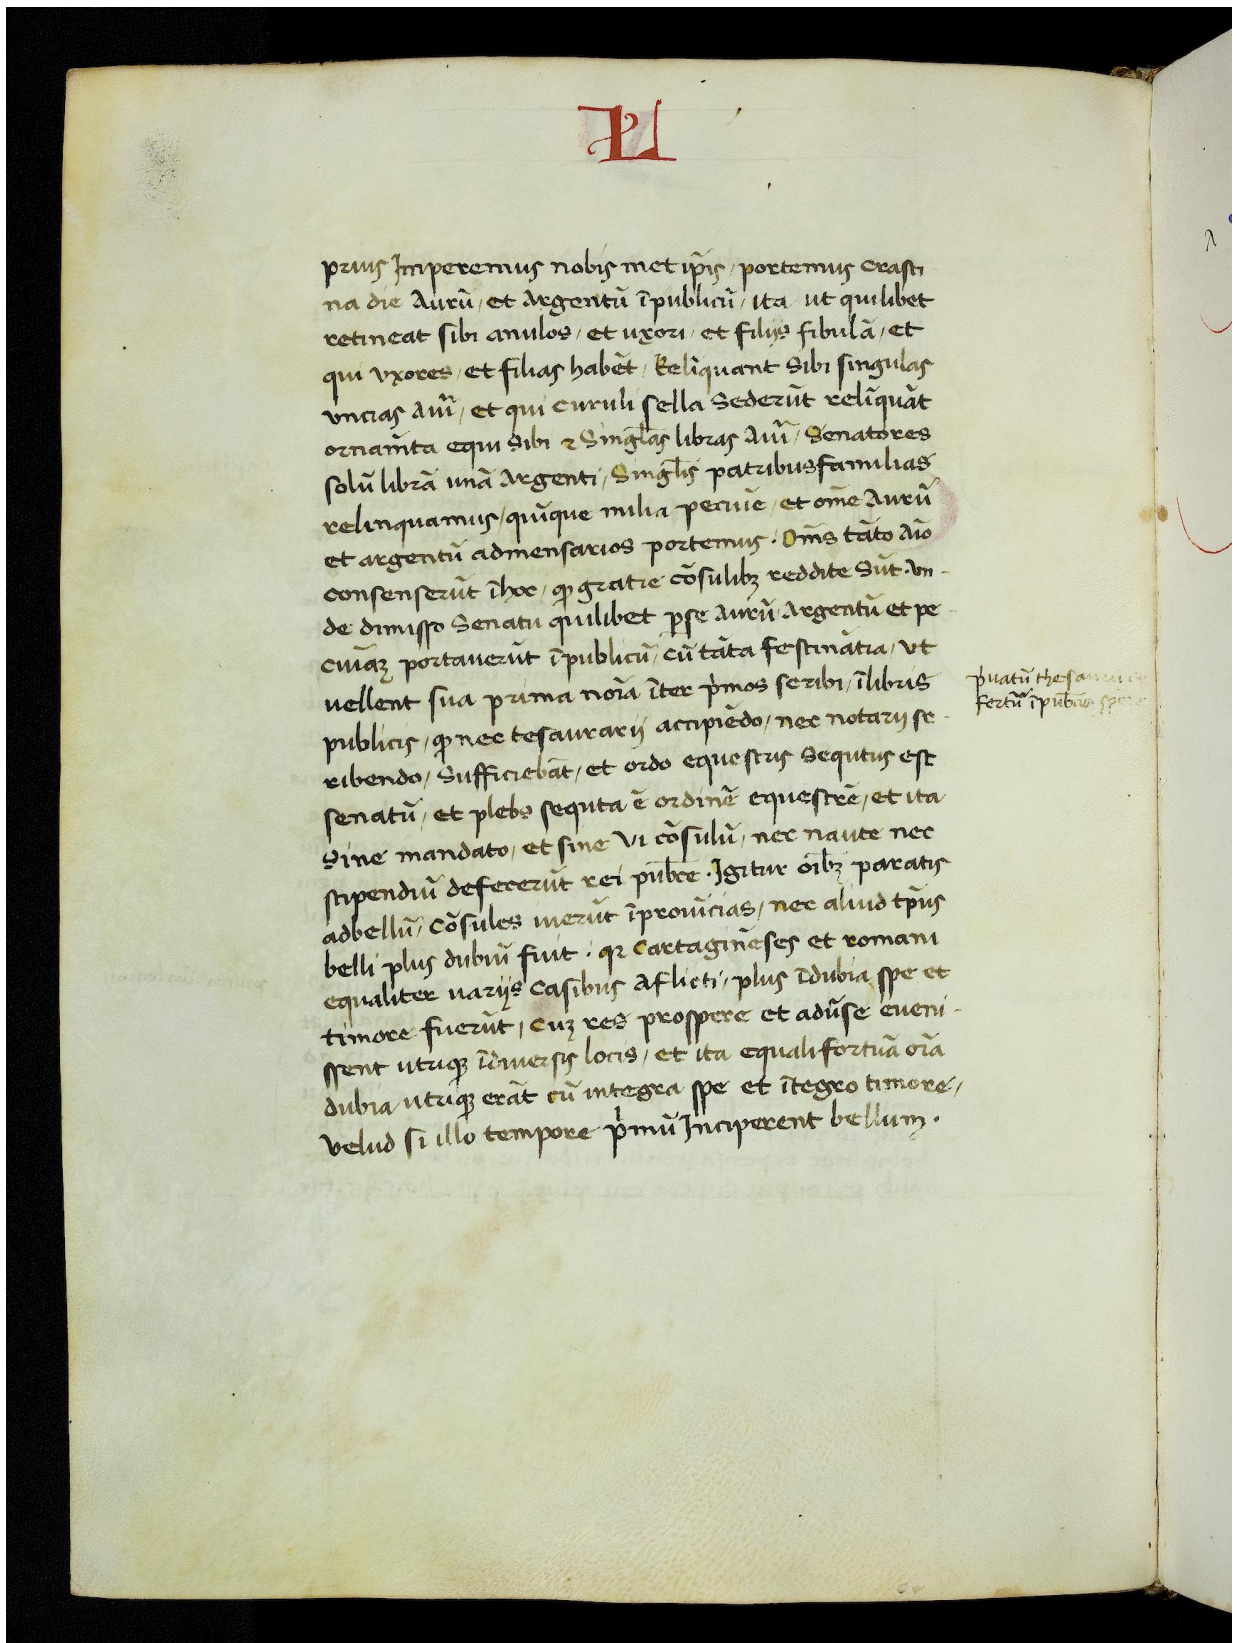 L
prius Imperemus nobis met ip̃is / portemus crasti
na die Aurũ / et Argentũ ĩpublicũ / ita ut quilibet
retineat sibi anulos / et uxori / et filijs fibulã / et
qui vxores / et filias habẽt / Relĩquant Sibi singulas
vncias Aur̃i / et qui curuli sella Sederũt relĩquãt
ornam̃ta equi Sibi ⁊ Singl̃as libras Aur̃i / Senatores
solũ librã unã Argenti / Singl̃is patribusfamilias
relinquamus / quĩque milia pecuie / et om̃e Aurũ
et argentũ admensarios portemus . Om̃s tãto Aĩo
consenserũt ĩhoc / qꝫ gratie cõsulibꝫ reddite Sũt . vn -
de dimisso Senatu quilibet ꝑse Aurũ / Argentũ et pe -
cuĩaꝫ portauerũt ĩpublicũ / cũ tãta festinãtia / vt
uellent sua prima noĩa ĩter pͥmos scribi / ĩlibris
publicis / qꝫ nec tesaurarij accipiẽdo / nec notarij sc -
ribendo / Sufficiebãt / et ordo equestris Sequtus est
senatũ / et plebs sequta ẽ ordinẽ equestrẽ / et ita
Sine mandato / et sine vi cõsulũ / nec naute nec
stipendiũ defecerũt rei pub̃ce . Igitur oĩbꝫ paratis
adbellũ / cõsules iuerũt ĩprouĩcias / nec aliud tp̃us
belli plus dubiũ fuit . qꝛ Cartaginẽses et romani
equaliter uarijs Casibus Aflicti / plus ĩdubia spe et
timore fuerũt / cuꝫ res prospere et adũse eueni -
ssent utriqꝫ ĩdiuersis locis / et ita equali fortuã oĩa
dubia utriqꝫ erãt cũ integra spe et ĩtegro timore /
velud si illo tempore pͥmũ Inciperent bellum .
pͥuatũ
fertũ